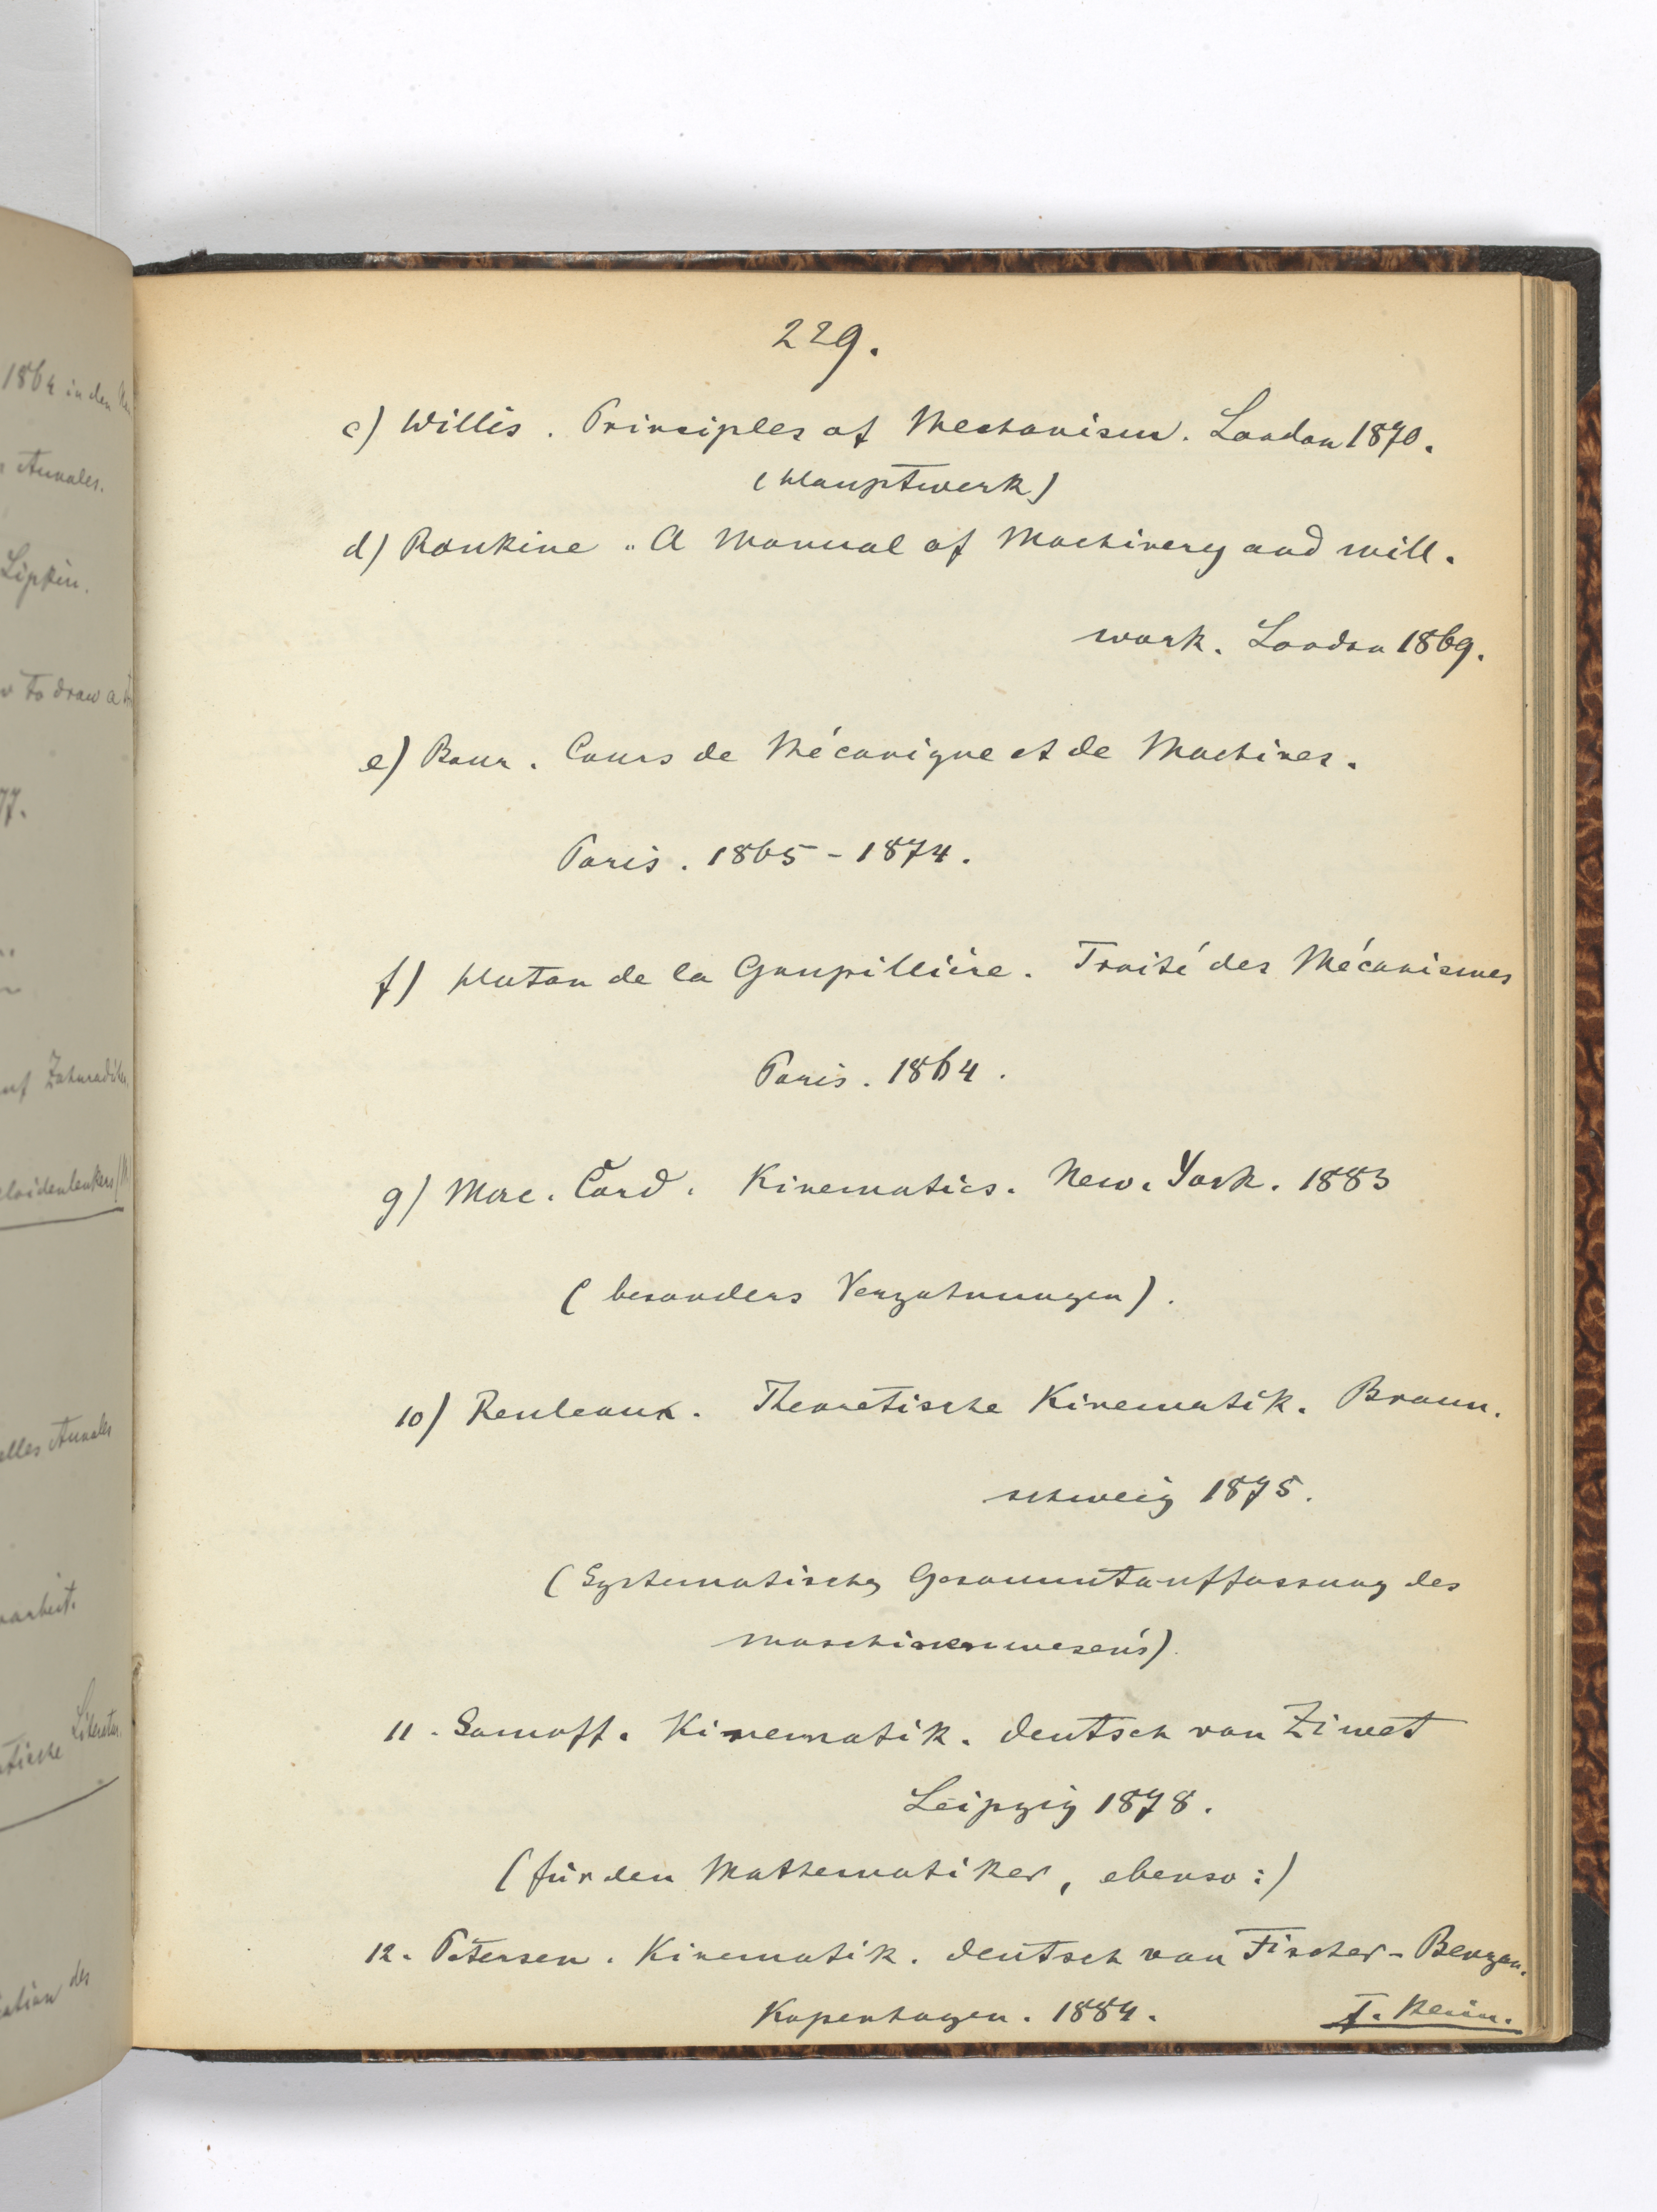 229.
c) Willis. Principles of Mechanism. London 1870.
(Hauptwerk)
d) Rankine „A Manual of Machinery and mill-
work. London 1869.
e) Bour. Cours de Mécanique et de Machines.
Paris. 1865-1874.
f) Haton de la Goupillière. Traité des Mécanismes
Paris. 1864.
g) Mac. Cord. Kinematics. New-York. 1883
(besonders Verzahnungen).
10) Reuleaux. Theoretische Kinematik. Braun-
schweig 1875.
(Systematische Gesammtauffassung des
Maschinenwesens)
11. Somoff. Kinematik. deutsch von Ziwet
Leipzig 1878.
(für den Mathematiker, ebenso:)
12. Petersen. Kinematik. deutsch von Fischer-Benzon.
Kopenhagen. 1884. F. Klein.
1864 in den
Annales.
Lipkin.
to draw a
77.
Zahnräder
elles Annales
arbeit.
Literatur.
des